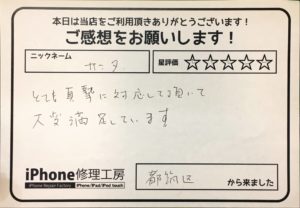 本日は当店をご利用頂きありがとうございます!
ご感想をお願いします!
ニックネーム
サータ
星評価 ☆☆☆☆☆
とても真摯に対応して頂いて
大変満足しています!
iPhone修理工房
iPhone Repair Factory iPhone/iPad/iPod touch
都筑区 から来ました